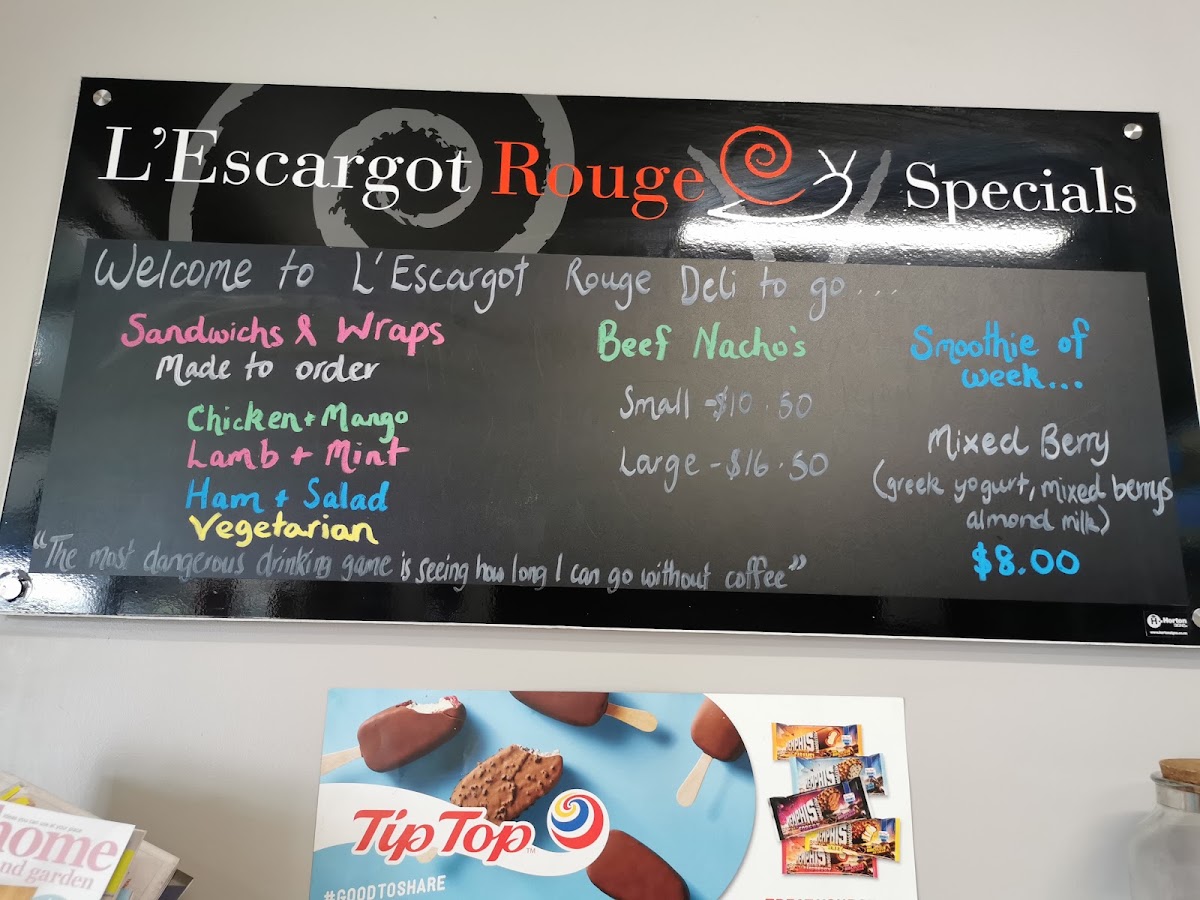 L'Escargot Rouge Specials
Welcome to L'Escargot Rouge Deli to go...
Sandwichs & Wraps
Made to order
Chicken + Mango
Lamb + Mint
Ham + Salad
Vegetarian
Beef Nacho's
Small - $10.50
Large - $16.50
Smoothie of
week...
Mixed Berry
(greek yogurt, mixed berrys
almond milk)
$8.00
"The most dangerous drinking game is seeing how long I can go without coffee"
Horton
Tip Top™
#GOODTOSHARE
MEMPHIS
home
nd garden